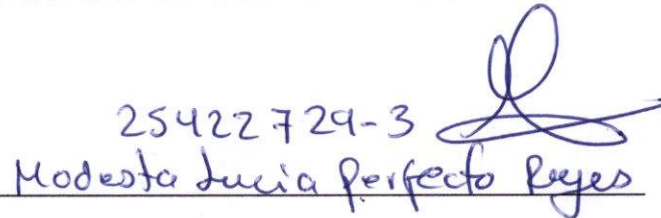 25422729-3
Modesta Lucia Perfecto Reyes